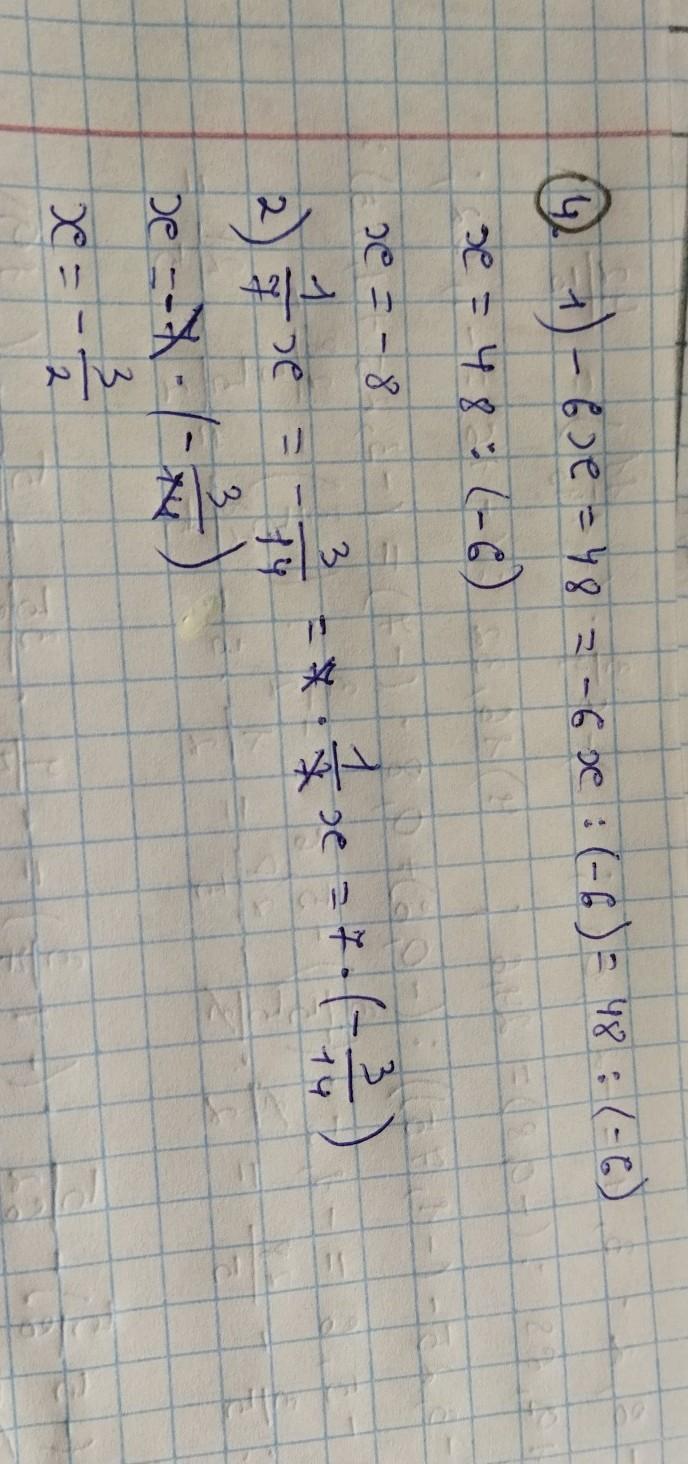 4. 1) -6x = 48 = -6x : (-6) = 48 : (-6)
x = 48 : (-6)
x = -8
2) 1/7 x = - 3/14 = 7 · 1/7 x = 7 · (- 3/14)
x = -7 · (- 3/14)
x = - 3/2